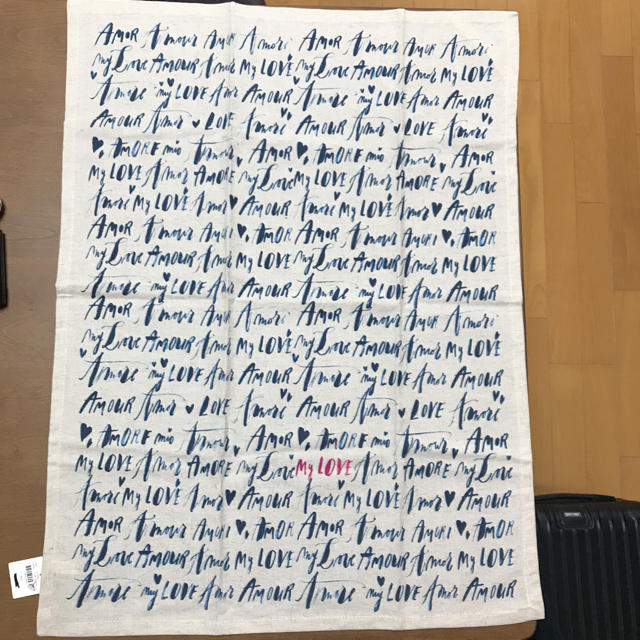 AMOR Amour AMOR Amore AMOR Amour AMOR Amore
my Love AMOUR Amor MY LOVE my Love AMOUR Amor MY LOVE
Amore my LOVE Amor AMOUR Amore my LOVE Amor AMOUR
AMOUR Amor LOVE Amore AMOUR Amor LOVE Amore
AMORE mio Amour AMOR AMORE mio Amour AMOR
MY LOVE Amor AMORE my Love MY LOVE Amor AMORE my Love
Amore MY LOVE Amor AMOUR Amore MY LOVE Amor AMOUR
AMOR Amour AMORE AMOR AMOR Amour AMORE AMOR
my Love AMOUR Amor MY LOVE my Love AMOUR Amor MY LOVE
Amore my LOVE Amor AMOUR Amore my LOVE Amor AMOUR
AMOR Amour AMOR Amore AMOR Amour AMOR Amore
my Love AMOUR Amor MY LOVE my Love AMOUR Amor MY LOVE
Amore my LOVE Amor AMOUR Amore my LOVE Amor AMOUR
AMOUR Amor LOVE Amore AMOUR Amor LOVE Amore
AMORE mio Amour AMOR AMORE mio Amour AMOR
MY LOVE Amor AMORE my Love MY LOVE Amor AMORE my Love
Amore MY LOVE Amor AMOUR Amore MY LOVE Amor AMOUR
AMOR Amour AMORE AMOR AMOR Amour AMORE AMOR
my Love AMOUR Amor MY LOVE my Love AMOUR Amor MY LOVE
Amore my LOVE Amor AMOUR Amore my LOVE Amor AMOUR